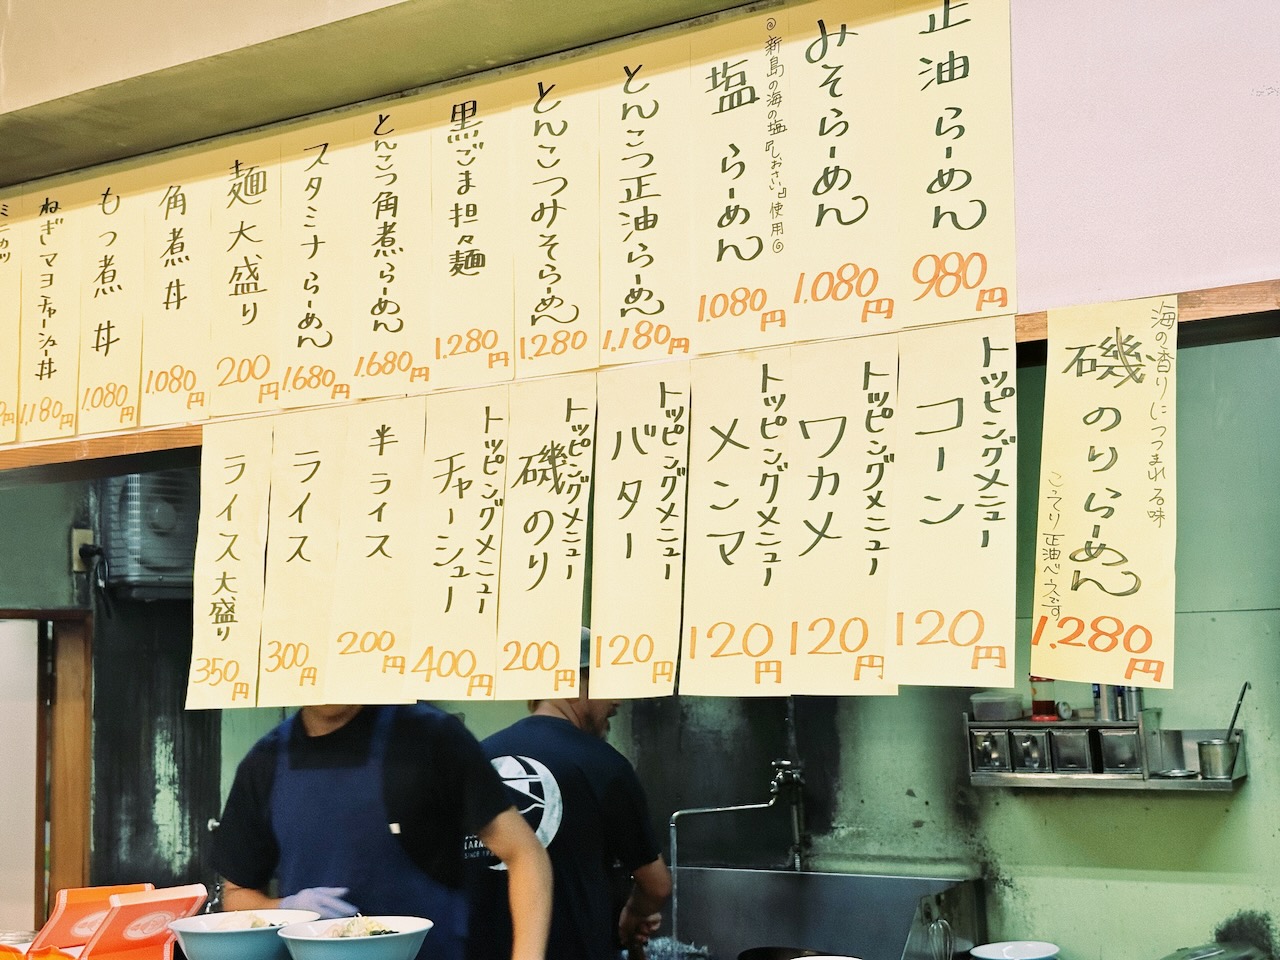 正油らーめん
980円
みそらーめん
1.080円
◎新島の海の塩『しおさい』使用◎
塩らーめん
1.080円
とんこつ正油らーめん
1.180円
とんこつみそらーめん
1.280円
黒ごま担々麺
1.280円
とんこつ角煮らーめん
1.680円
スタミナらーめん
1.680円
麺大盛り
200円
角煮丼
1.080円
もつ煮丼
1.080円
ねぎマヨチャーシュー丼
1.180円
円
海の香りにつつまれる味
磯のりらーめん
こってり正油ベースです
1.280円
トッピングメニュー
コーン
120円
トッピングメニュー
ワカメ
120円
トッピングメニュー
メンマ
120円
トッピングメニュー
バター
120円
トッピングメニュー
磯のり
200円
トッピングメニュー
チャーシュー
400円
半ライス
200円
ライス
300円
ライス大盛り
350円